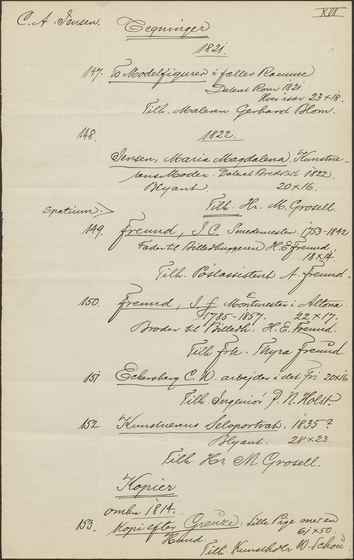 C. A. Jensen. XVI
Tegninger
1821.
147. To Modelfigurer i fælles Ramme
Dateret Rom 1821
Hver især 23 × 18.
Tilh. Maleren Gerhard Blom.
148. 1822.
Jensen, Maria Magdalena, Kunstne-
rens Moder. Dateret Bredsted 1822
Blyant. 20 × 16.
Tilh. Hr. M. Grosell.
Spatium.
149. Freund, J. C. Smedemester. 1753-1842
Fader til Billedhuggeren H. E. Freund.
18 × 14.
Tilh. Postassistent A. Freund.
150. Freund, J. f. Møntmester i Altona
1785-1857. 22 × 17.
Broder til Billedh. H. E. Freund.
Tilh. Frk. Thyra Freund
151 Eckersberg C. W. arbejder i det Fri 20×16
Tilh. Ingeniør P. N. Holst
152. Kunstnerens Selvportræt. 1835?
Blyant. 28 × 23
Tilh. Hr M. Grosell.
Kopier
omkr. 1814.
153. Kopi efter Greuze. Lille Pige med en
Hund 61 × 50
Tilh. Kunsthdlr W. Schou